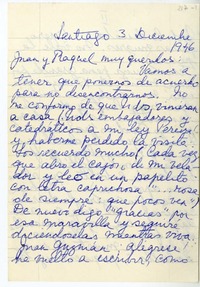 Santiago 3. Diciembre
1946
Juan y Raquel muy queridos:
Vamos a
tener que ponernos de acuerdo
para no desencontrarnos. No
me conformo de que Uds. vinieran
a casa,
catedráticos a mi
y haberme perdido la visita
Los recuerdo mucho, cada vez
que abro el cajón de mi
y leo en un papelito
con letra caprichosa "... rosa
de siempre: que pocos ven")
De nuevo digo "gracias" por
esa maravilla y seguiré
diciéndoselas mientras viva.
Juan Guzmán
he vuelto a escribir, como